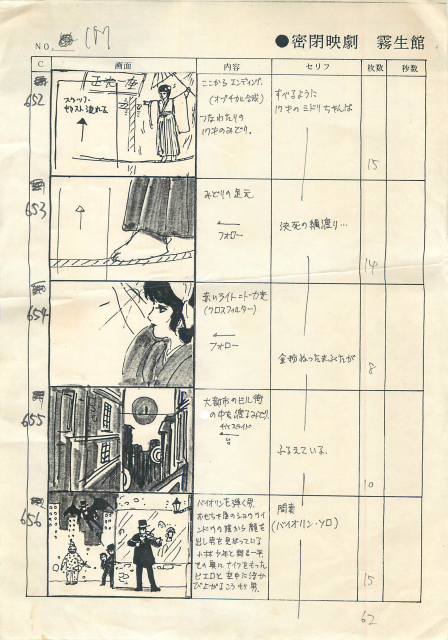 NO. 1M
●密閉映劇　霧生館
C 画面 内容 セリフ 枚数 秒数
652
スタッフ・
キャスト流れる
ここから エンディング.
(オプチカル合成)
つなわたりの
ワキのみどり.
すべるように
ワキのミドリちゃんは
15
653
みどりの足元
フォロー
決死の綱渡り…
14
654
赤いライト
(クロスフィルター)
フォロー
金粉ぬったまぶたが
8
655
大都市のビル街
の中を渡るみどり.
ふるえている.
10
656
バイオリンを弾く男.
おもちゃ屋のショウウイ
ンドウの陰から顔を
出し男を見はっている
小林少年と
その奥にナイフをもった
ピエロと空中に浮か
び上がるこうもり男.
間奏
(バイオリン・ソロ)
15
62